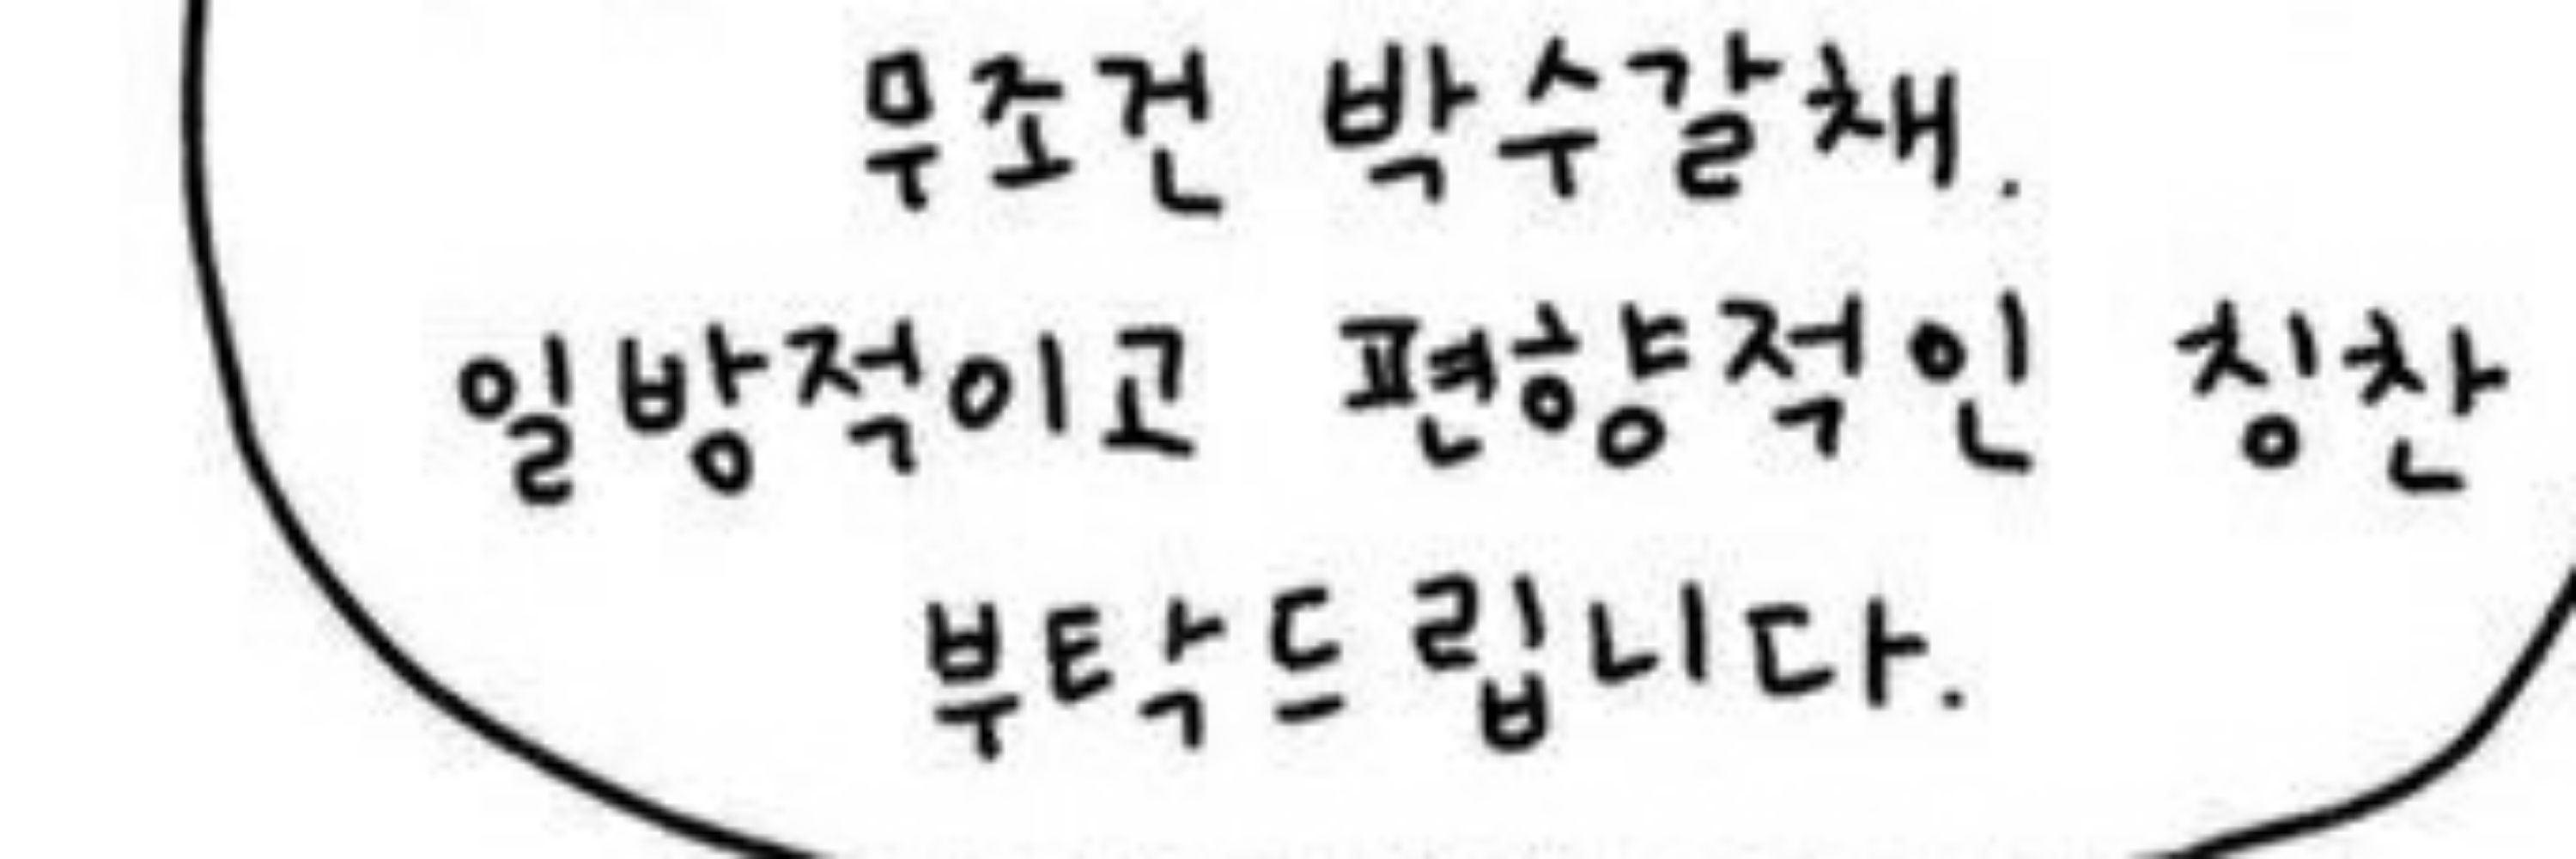 무조건 박수갈채.
일방적이고 편향적인 칭찬
부탁드립니다.